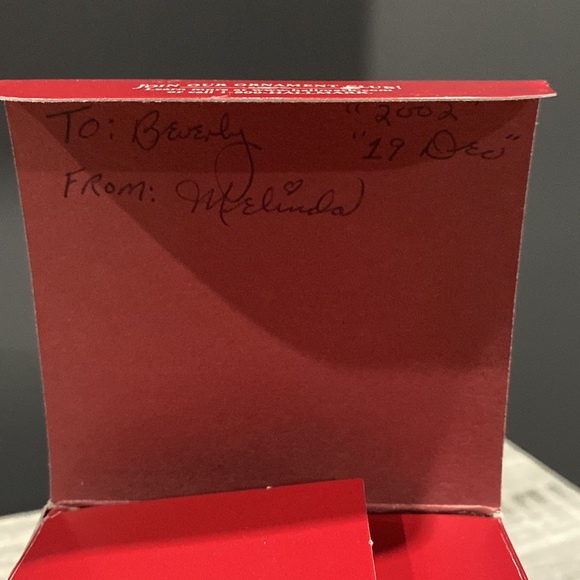 JOIN OUR ORNAMENT
To: Beverly "2002
"19 Dec"
FROM: Melinda